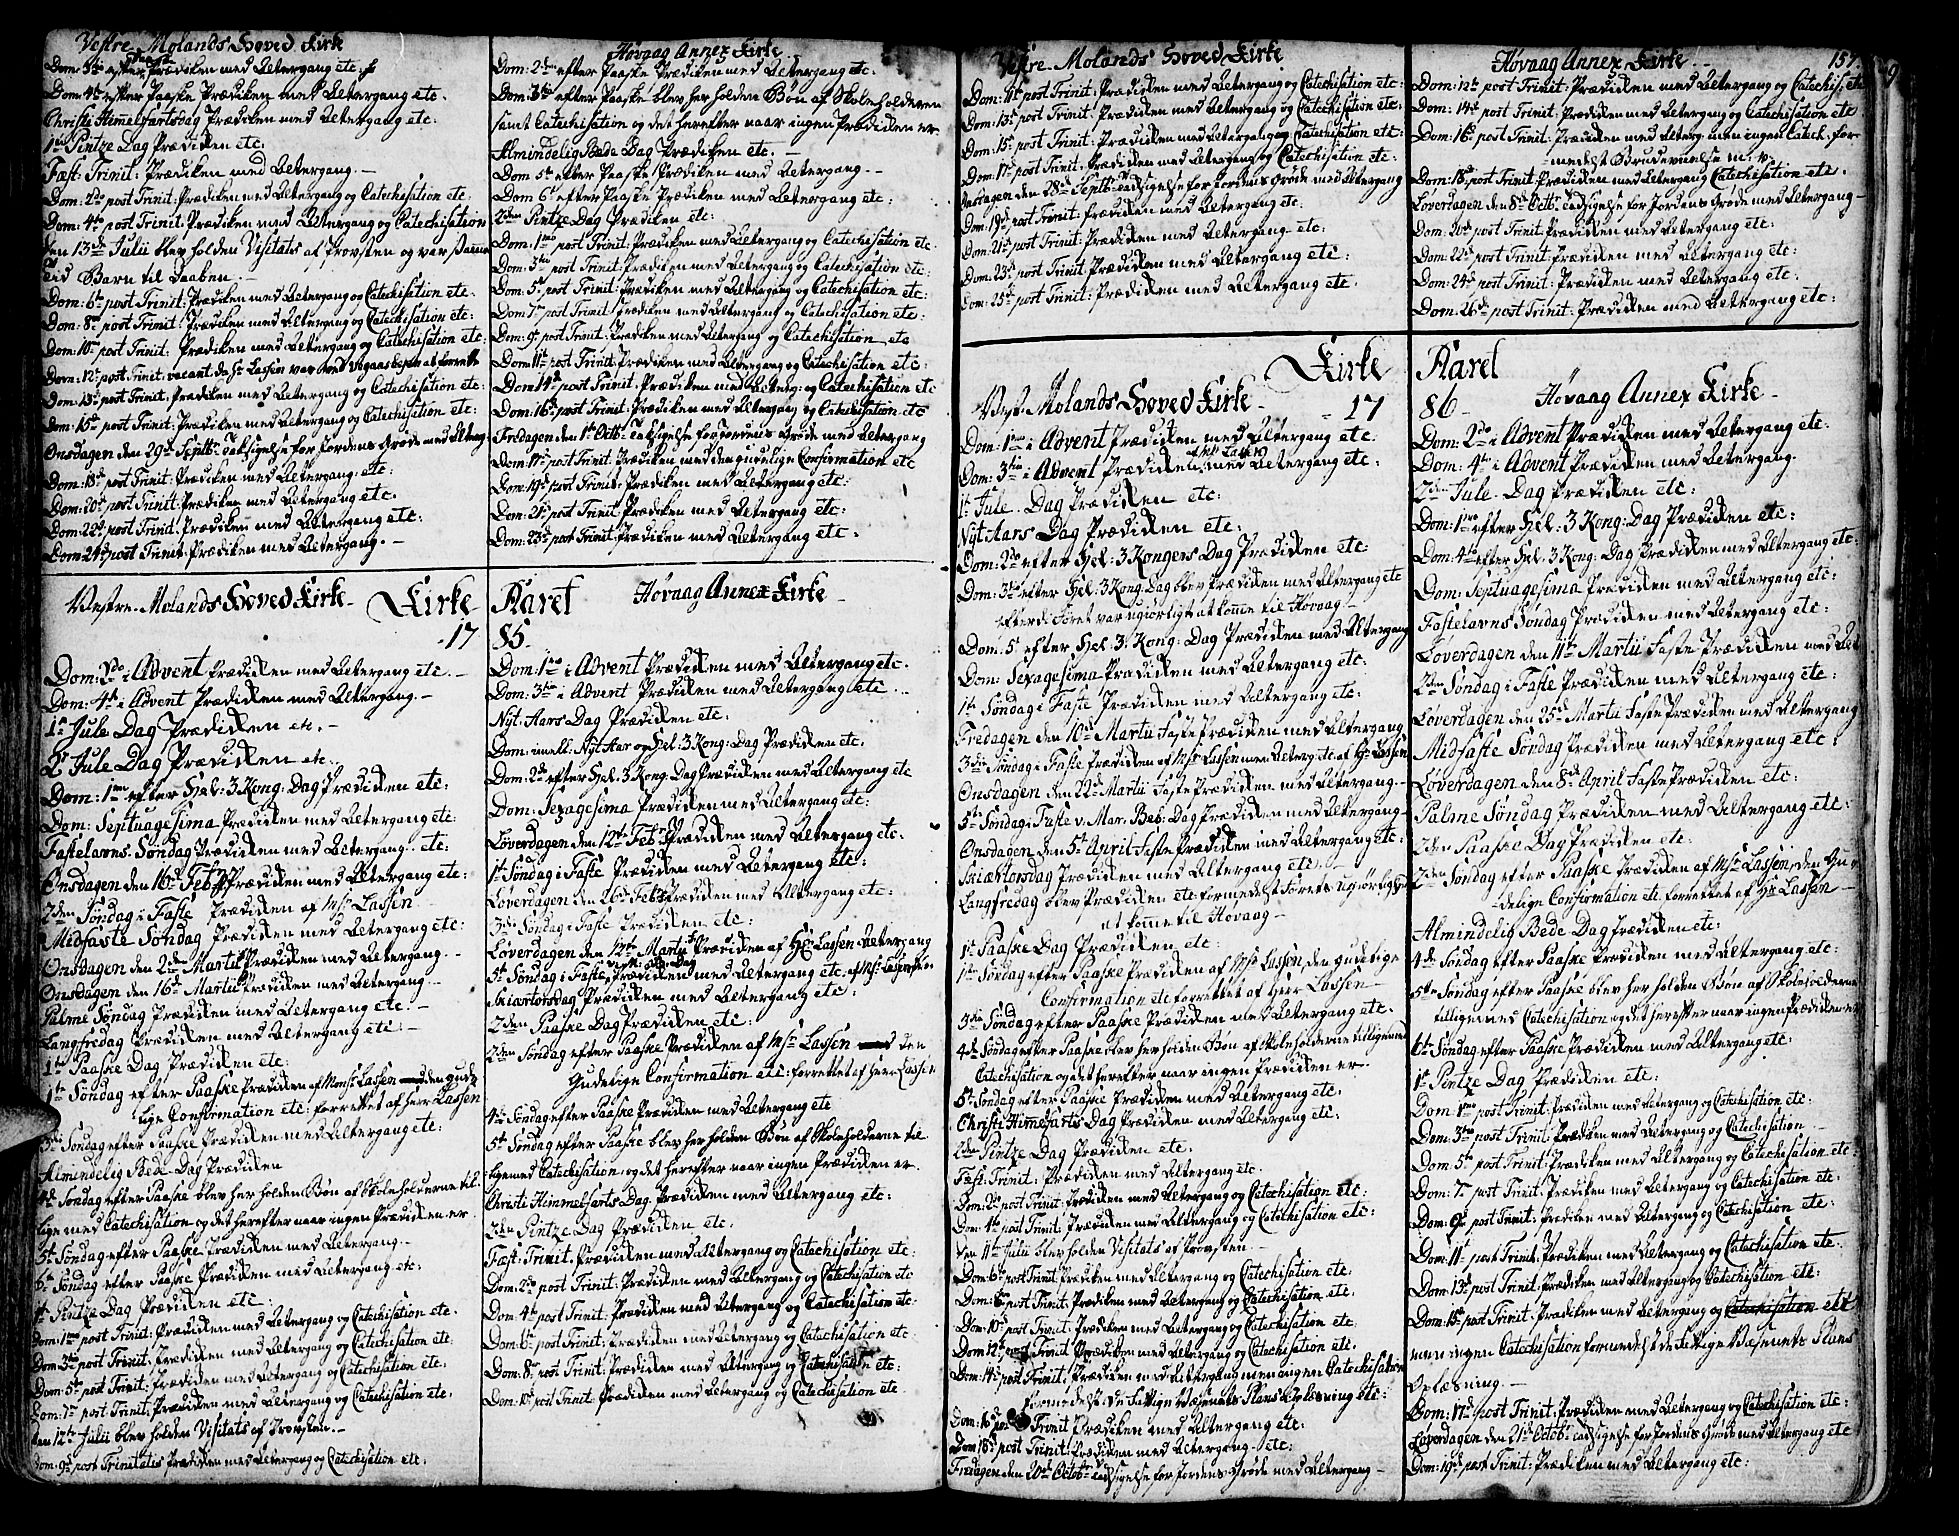 Vestre Molands Hoved Kirke
Dom: 4de efter Paaske Prædiken med Altergang etc.
Christi Himmelfartsdag Prædiken med Altergang etc:
1ste Pintze Dag Prædiken etc.
Fæst: Trinit: Prædiken med Altergang. -
Dom: 2do post Trinit: Prædiken med Altergang og Catechisation etc.
Dom: 4to post Trinit: Prædiken med Altergang og Catechisation
den 13de Julii blev holden Visitats af Provsten og var samme
Tid Barn til Daaben -
Dom: 6to post Trinit: Prædiken med Altergang og Catechisation etc.
Dom: 8vo post Trinit: Prædiken med Altergang og Catechisation etc:
Dom: 10mo post Trinit: Prædiken med Altergang og Catechisation etc:
Dom: 12mo post Trinit: vacant da Hr Lassen var
Dom: 13de post Trinit: Prædiken med Altergang og Catechisation etc:
Dom: 15de post Trinit: Prædiken med Altergang og Catechisation etc:
Onsdagen den 29de Septbr Taksigelse for Jordens Grøde med Alterg
Dom: 18de post Trinit: Prædiken med Altergang etc:
Dom: 20de post Trinit: Prædiken med Altergang etc.
Dom: 22de post Trinit: Prædiken med Altergang etc:
Dom: 24de post Trinit: Prædiken med Altergang. -
Høvaag Annex Kirke
Dom: 2den efter Paaske Prædiken med Altergang etc.
Dom: 3tie efter Paaske blev her holden Bøn af Skoleholderen
samt Catechisation og det herefter naar ingen Prædiken er
Almindelig Bede Dag Prædiken etc. -
Dom 5te efter Paaske Prædiken med Altergang - -
Dom 6te efter Paaske Prædiken med Altergang etc:
2den Pintze Dag Prædiken etc:
Dom: 1mo post Trinit: Prædiken med Altergang og Catechisation etc
Dom: 3tio post Trinit: Prædiken med Altergang og Catechisation etc:
Dom: 5to post Trinit: Prædiken med Altergang og Catechisation etc:
Dom: 7mo post Trinit: Prædiken med Altergang og Catechisation etc:
Dom: 9de post Trinit: Prædiken med Altergang og Catechisation etc
Dom: 11te post Trinit: Prædiken med Altergang og Catechisation etc
Dom 14de post Trinit: Prædiken med Alterg: og Catechisation etc
Dom: 16de post Trinit: Prædiken med Altergang og Catechisation etc
Fredagen den 1ste Octbr Taksigelse for Jordens Grøde med Altergang
Dom: 17de post Trinit: Prædiken med den gudelige Confirmation etc
Dom: 19de post Trinit: Prædiken med Altergang etc:
Dom: 21de post Trinit: Prædiken med Altergang etc:
Dom: 23de post Trinit: Prædiken med Altergang etc.
Vestre Molands Hoved Kirke - Kirke Aaret Høvaag Annex Kirke -
17 85.
Dom: 2do i Advent Prædiken med Altergang etc. -
Dom: 4to i Advent Prædiken med Altergang. -
1ste Jule Dag Prædiken etc. -
2den Jule Dag Prædiken etc.
Dom: 1mo efter Hel: 3 Kong: Dag Prædiken etc:
Dom: Septuagesima Prædiken med Altergang etc:
Fastelavns Søndag Prædiken med Altergang. etc:
Onsdagen den 16de Febr: Prædiken med Altergang etc:
2den Søndag i Faste Prædiken af Msr Lassen
Midfaste Søndag Prædiken med Altergang etc:
Onsdagen den 2den Martii Prædiken med Altergang. -
Onsdagen den 16de Martii Prædiken med Altergang -
Palme Søndag Prædiken med Altergang etc. -
Langfredag Prædiken med Altergang etc -
1ste Paaske Dag Prædiken etc:
1ste Søndag efter Paaske Prædiken af Mons: Lassen den gude
lige Confirmation etc: forrettet af Herr Lassen
3die Søndag efter Paaske Prædiken med Altergang etc:
Almindelig Bede Dag Prædiken
4de Søndag efter Paaske blev her holden Bøn af Skoleholderne til
lige med Catechisation og det herefter naar ingen Prædiken er
5te Søndag efter Paaske Prædiken med Altergang. -
6te Søndag efter Paaske Prædiken med Altergang etc:
1ste Pintze Dag Prædiken etc:
Dom: 1mo post Trinit: Prædiken med Altergang og Catechisation etc.
Dom: 3tio post Trinit: Prædiken med Altergang og Catechisation etc:
Dom: 5to post Trinit: Prædiken med Altergang og Catechisation etc:
Dom: 7mo post Trinit: Prædiken med Altergang og Catechisation etc:
den 12te Julii blev holden Visitats af Provsten. -
Dom: 9de post Trinitatis Prædiken med Altergang og Catechisation etc.
Dom: 1mo i Advent Prædiken med Altergang etc.
Dom: 3tio i Advent Prædiken med Altergang etc
Nyt-Aars Dag Prædiken etc:
Dom: imell: Nyt Aar og Hel: 3 Kong: Dag Prædiken etc.
Dom: 2do efter Hel: 3 Kong: Dag Prædiken med Altergang etc
Dom: Sexagesima Prædiken med Altergang etc:
Løverdagen den 12te Febr: Prædiken med Altergang etc:
1ste Søndag i Faste Prædiken med Altergang etc:
Løverdagen den 26de Febr: Prædiken med Altergang etc:
3die Søndag i Faste Prædiken etc:
Løverdagen den 12te Martii Prædiken af Hr Lassen Altergang
5te Søndag i Faste Prædiken med Altergang etc. af Msr Lassen
Skiærtorsdag Prædiken med Altergang etc:
2den Paaske Dag Prædiken etc:
2den Søndag efter Paaske Prædiken af Msr Lassen den
Gudelige Confirmation etc: forrettet af Herr Lassen
4de Søndag efter Paaske Prædiken med Altergang etc
5te Søndag efter Paaske blev her holden Bøn af Skoleholderne til
ligemed Catechisation, og det herefter naar ingen Prædiken er.
Christi Himmelfarts Dag Prædiken med Altergang etc:
2den Pintze Dag Prædiken etc:
Fæst: Trinit. Prædiken med Altergang og Catechisation etc:
Dom: 2do post Trinit: Prædiken med Altergang og Catechisation etc
Dom: 4to post Trinit: Prædiken med Altergang og Catechisation etc:
Dom: 6to post Trinit: Prædiken med Altergang og Catechisation etc
Dom: 8vo post Trinit: Prædiken med Altergang og Catechisation etc:
Dom: 10de post Trinit: Prædiken med Altergang og Catechisation etc
Vestre Molands Hoved Kirke
Dom: 11te post Trinit: Prædiken med Altergang og Catechisation etc:
Dom: 13de post Trinit: Prædiken med Altergang og Catechisation etc:
Dom: 15de post Trinit: Prædiken med Altergang og Catechisation etc:
Dom: 17de post Trinit: Prædiken med Altergang og Catechisation etc:
Onsdagen den 28de Septbr Taksigelse for Jordens Grøde med Altergang
Dom: 19de post Trinit: Prædiken med Altergang etc:
Dom: 21de post Trinit: Prædiken med Altergang etc:
Dom: 23de post Trinit: Prædiken med Altergang etc:
Dom: 25de post Trinit: Prædiken med Altergang etc.
Høvaag Annex Kirke - 157.
Dom: 12te post Trinit: Prædiken med Altergang og Catechis: etc
Dom: 14de post Trinit: Prædiken med Altergang og Catechisation etc
Dom: 16de post Trinit: Prædiken med Alterg: men ingen Catech: for-
medelst Brudevielse m: v:
Dom: 18de post Trinit: Prædiken med Altergang Catechisation etc.
Løverdagen den 8de Octbr Taksigelse for Jordens Grøde med Altergang -
Dom: 20de post Trinit: Prædiken med Altergang etc:
Dom: 22de post Trinit: Prædiken med Altergang etc:
Dom: 24de post Trinit: Prædiken med Altergang etc:
Dom: 26de post Trinit: Prædiken med Altergang etc:
Kirke Aaret
Vest: Molands Hoved Kirke - 17 86 - Høvaag Annex Kirke -
Dom: 1mo i Advent Prædiken med Altergang etc.
Dom: 3tio i Advent Prædiken med Altergang etc:
1ste Jule Dag Prædiken etc:
Nyt Aars Dag Prædiken etc:
Dom: 2do efter Hel: 3 Kongers Dag Prædiken etc:
Dom: 3tio efter Hel: 3 Kong: Dag blev Prædiken med Altergang etc
efterdi Føret var ugiørligt at komme til Høvaag -
Dom: 5 efter Hel: 3 Kong: Dag Prædiken med Altergang
Dom: Sexagesima Prædiken med Altergang etc:
1ste Søndag i Faste Prædiken med Altergang etc:
Fredagen den 10de Martii Faste Prædiken med Altergang
3die Søndag i Faste Prædiken af Msr Lassen men Alterg: etc: af Hr Lassen
Onsdagen den 22de Martii Faste Prædiken med Altergang -
5te Søndag i Faste v. Mar. Beb: Dag Prædiken med Altergang -
Onsdagen den 5te April Faste Prædiken med Altergang etc:
Skiærtorsdag Prædiken med Altergang etc: -
Langfredag blev Prædiken etc formedelst Førets ugiørlighed
at komme til Høvaag -
1ste Paaske Dag Prædiken etc:
1ste Søndag efter Paaske Prædiken af Msr Lassen, den gudelige
Confirmation etc forrettet af Herr Lassen -
3die Søndag efter Paaske Prædiken med Altergang etc.
4de Søndag efter Paaske blev her holden Bøn af Skoleholderne tilligemed
Catechisation og det herefter naar ingen Prædiken er -
5te Søndag efter Paaske Prædiken med Altergang etc:
Christi Himelfarts Dag Prædiken med Altergang etc:
2den Pintze Dag Prædiken etc.
Fæst: Trinit: Prædiken med Altergang etc:
Dom: 2do post Trinit: Prædiken med Altergang og Catechisation etc
Dom: 4to post Trinit: Prædiken med Altergang og Catechisation etc:
den 11te Julii blev holden Visitats af Provsten -
Dom: 6to post Trinit: Prædiken med Altergang og Catechisation etc:
Dom: 8vo post Trinit: Prædiken med Altergang og Catechisation etc:
Dom: 10de post Trinit: Prædiken med Altergang og Catechisation etc:
Dom: 12te post Trinit Prædiken med Altergang og Catechisation etc.
Dom: 14de post Trinit: Prædiken med Altergang men ingen Catechisation
formedelst de Fattige Væsenets Plans Oplæsning etc:
Dom: 16de post Trinit Prædiken med Altergang etc:
Dom 18de post Trinit: Prædiken med Altergang - etc:
Fredagen den 20de Octobr Taksigelse for Jordens Grøde med Altergang -
Dom: 2do i Advent Prædiken med Altergang etc:
Dom: 4to i Advent Prædiken med Altergang.
2den Jule - Dag Prædiken etc:
Dom: 1mo efter Hel: 3 Kong: Dag Prædiken etc:
Dom: 4to efter Hel: 3 Kong: Dag Prædiken med Altergang etc:
Dom: Septuagesima Prædiken med Altergang etc:
Fastelavns Søndag Prædiken med Altergang etc:
Løverdagen den 11te Martii Faste Prædiken med Alt
2den Søndag i Faste Prædiken med Altergang etc:
Løverdagen den 25de Martii Faste Prædiken med Altergang
Midfaste Søndag Prædiken med Altergang etc:
Løverdagen den 8de April Faste Prædiken med Altergang
Palme Søndag Prædiken med Altergang etc:
2den Paaske Dag Prædiken etc:
2den Søndag efter Paaske Prædiken af Msr Lassen, den Gu
delige Confirmation etc. forrettet af Hr Lassen -
Almindelig Bede Dag Prædiken etc:
4de Søndag efter Paaske Prædiken med Altergang etc:
5te Søndag efter Paaske blev her holden Bøn af Skoleholderne
tilligemed Catechisation og det herefter naar ingen Prædiken er
6te Søndag efter Paaske Prædiken med Altergang etc:
1ste Pintze Dag Prædiken etc:
Dom: 1mo post Trinit: Prædiken med Altergang og Catechisation etc:
Dom: 3tio post Trinit: Prædiken med Altergang og Catechisation
Dom: 5to post Trinit: Prædiken med Altergang og Catechisation etc:
Dom: 7mo post Trinit: Prædiken med Altergang og Catechisation etc.
Dom: 9de post Trinit: Prædiken med Altergang og Catechisation etc:
Dom: 11te post Trinit: Prædiken med Altergang og Catechisation etc.
Dom: 13de post Trinit: Prædiken med Altergang og Catechisation etc:
Dom: 15de post Trinit: Prædiken med Altergang og Catechisation etc
men ingen Catechisation formedelst de Fattige Væsenets Plans
Oplæsning. -
Dom: 17de post Trinit: Prædiken med Altergang og Catechisation etc:
Løverdagen den 21de Octobr Taksigelse for Jordens Grøde med Altergang etc:
Dom: 19de post Trinit: Prædiken med Altergang etc: